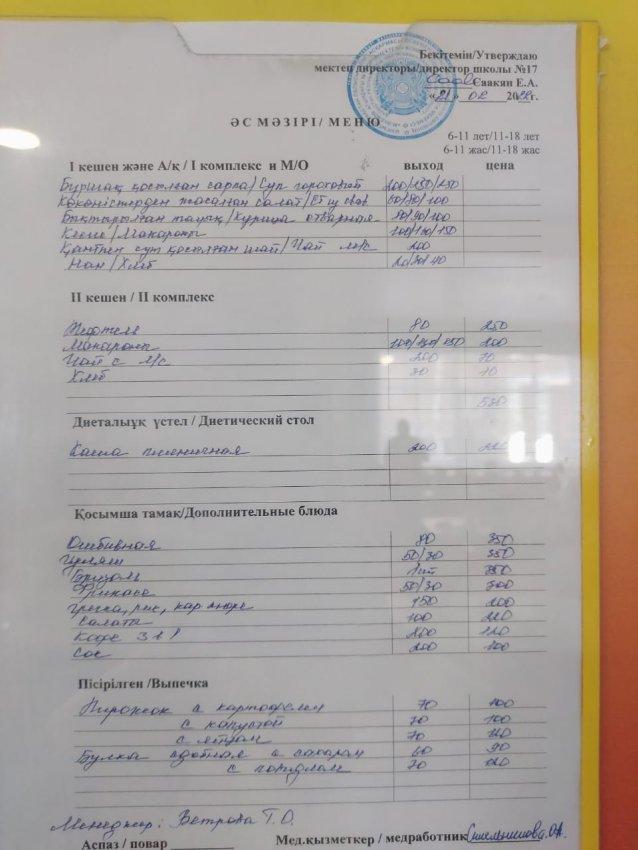 Бекітемін/Утверждаю
мектеп директоры/директор школы №17
Саакян Е.А.
«21» 02 2022г.
ӘС МӘЗІРІ/ МЕНЮ
6-11 лет/11-18 лет
6-11 жас/11-18 жас
І кешен және А/қ / І комплекс и М/О выход цена
Бұршақ қосылған сорпа/Суп гороховый 200/250/250
Көкөністерден жасалған салат/ 60/80/100
Бықтырылған тауық/Курица отварная 80/90/100
Кеспе/Макароны 100/130/150
Қантпен сүт қосылған шай/Чай м/с 200
Нан/Хлеб 20/30/40
ІІ кешен / ІІ комплекс
Тефтели 80 250
Макароны 100/130/150 200
Чай с м/с 200 70
Хлеб 20 10
530
Диеталық үстел / Диетический стол
Каша пшеничная 200 220
Қосымша тамақ/Дополнительные блюда
Отбивная 80 350
Гуляш 50/30 350
Бризоль 1шт 350
Фрикасе 50/30 300
Гречка, рис, кар пюре 150 200
Салаты 100 220
Кофе 3в1 200 120
Сок 200 100
Пісірілген /Выпечка
Пирожок с картофелем 70 100
с капустой 70 100
с яйцом 70 120
Булка сдобная с сахаром 60 90
с повидлом 70 120
Менеджер: Ветрова Т.О.
Аспаз / повар Мед.қызметкер / медработник